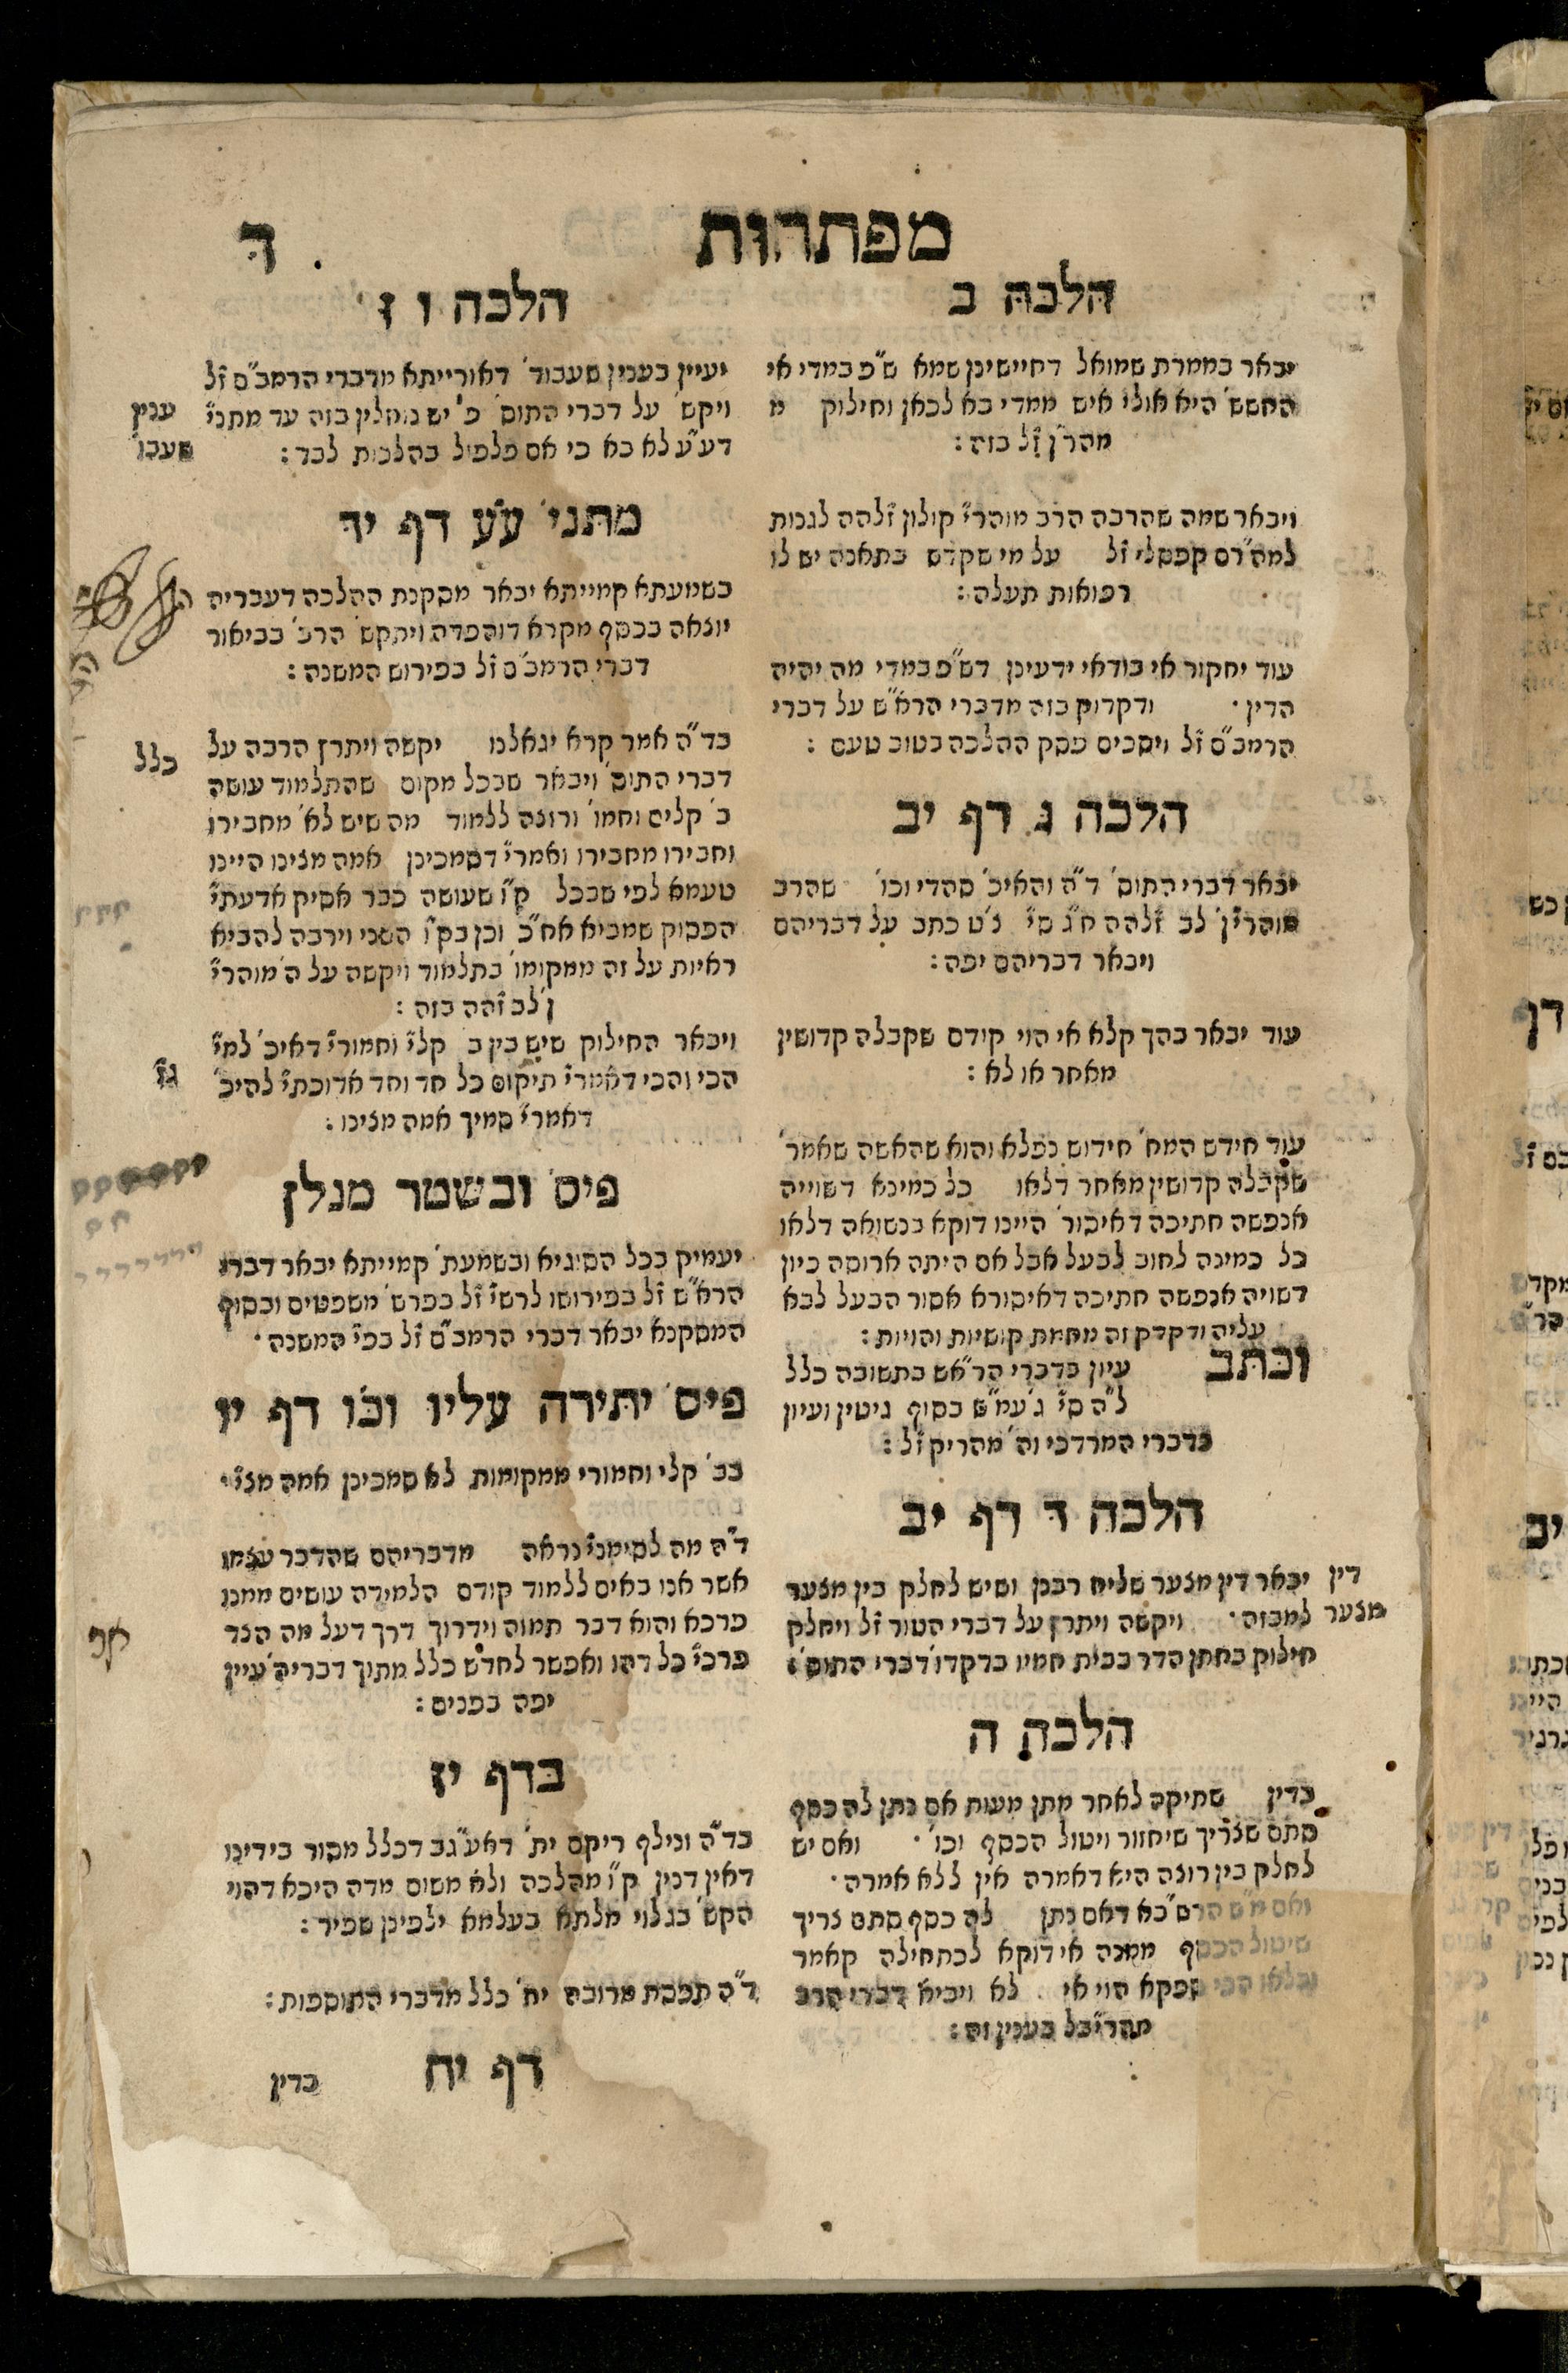 מפתחות
ד
הלכה ב
יבאר במחרת שמואל דחיישינן שמא ש"פ במדי אי
החשש' היא אולי איש ממדי בא לכאן וחילוק מ
מהר"ן ז"ל בזה :
ויבאר שמה שהרבה הרב מוהר"י קולון זלהה לגנות
למה"רם קפסלי ז"ל על מי שקדש בתאנה יש לו
רפואות תעלה :
עוד יחקור אי בודאי ידעינן דש"פ במדי מה יהיה
הדין · ודקדוק בזה מדברי הרא"ש על דברי
הרמב"ם ז"ל ויסכים פסק ההלכה בטוב טעם :
הלכה ג דף יב
יבאר דברי התוס' ד"ה והאיכ' סהדי וכו' שהרב
מוהר"ין לב זלהה ח"ג סי' נ"ט כתב על דבריהם
ויבאר דבריהם יפה :
עוד יבאר בהך קלא אי הוי קודם שקבלה קדושין
מאחר או לא :
עוד חידש המח' חידוש נפלא והוא שהאשה שאמר'
שקבלה קדושין מאחר דלאו כל כמינא דשוייה
אנפשה חתיכה דאיסור' היינו דוקא בנשואה דלאו
כל כמינה לחוב לבעל אבל אם היתה ארוסה כיון
דשויה אנפשה חתיכה דאיסורא אסור הבעל לבא
עליה ודקדק זה מחמת קושיות והויות :
וכתב עיון בדברי הר"אש בתשובה כלל
ל"ה סי' ג' עמ"ש בסוף גיטין ועיון
בדברי המרדכי וה' מהריק ז"ל :
הלכה ד דף יב
דין יבאר דין מצער שליח רבנן ושיש לחלק בין מצער
מצער למבזה · ויקשה ויתרץ על דברי הטור ז"ל ויחלק
חילוק בחתן הדר בבית חמיו בדקדו' דברי התוס' :
הלכה ה
בדין שתיקה לאחר מתן מעות אם נתן לה כסף
סתם שצריך שיחזור ויטול הכסף וכו' · ואם יש
לחלק בין רוצה היא דאמרה אין ללא אמרה ·
ואם מ"ש הרש"בא דאם נתן לה כסף סתם צריך
שיטול הכסף ממנה אי דוקא לכתחילה קאמר
ובלאו הכי ספקא הוי אי לא ויביא דברי הרב
מהריבל בענין זה :
הלכה ו ז
יעיין בענין שעבוד' דאורייתא מדברי הרמב"ם ז"ל
ויקש' על דברי התוס' פ' יש נוחלין בזה עד מתני'
דע"ע לא בא כי אם פלפול בהלכות לבד :
ענין
שעבו'
מתני' ע"ע דף יד
בשמעתא קמייתא יבאר מסקנת ההלכה דעבריה
יוצאה בכסף מקרא דוהפדה ויתקש' הרב' בביאור
דברי הרמב"ם ז"ל בפירוש המשנה :
כלל
בד"ה אמר קרא יגאלנו יקשה ויתרץ הרבה על
דברי התוס' ויבאר שבכל מקום שהתלמוד עושה
ב' קלים וחמו' ורוצה ללמוד מה שיש לא' מחבירו
וחבירו מחבירו ואמרי' דסמכינן אמה מצינו היינו
טעמא לפי שבכל ק"ו שעושה כבר אסיק אדעתי'
הפסוק שמביא אח"כ וכן בק"ו השני וירבה להביא
ראיות על זה ממקומו' בתלמוד ויקשה על ה' מוהר"י
ן' לב זהה בזה :
ויבאר החילוק שיש בין ב קלי' וחמורי' דאיכ' למי'
הכי והכי דאמרי' תיקום כל חד וחד אדוכתי' להיכ'
דאמרי' סמיך אמה מצינו :
פיס' ובשטר מנלן
יעמיק בכל הסוגיא ובשמעת' קמייתא יבאר דברי
הרא"ש ז"ל בפירושו לרש"י ז"ל בפרש' משפטים ובסוף
המסקנא יבאר דברי הרמב"ם ז"ל בפי' המשנה ·
פיס' יתירה עליו וכו' דף יו
בב' קלי וחמורי ממקומות לא סמכינן אמה מצי'
ד"ה מה לסימני' נראה מדבריהם שהדבר עצמו
אשר אנו באים ללמוד קודם הלמידה עושים ממנו
פרכא והוא דבר תמוה וידרוך דרך דעל מה הצד
פרכי' כל דהו ואפשר לחדש כלל מתוך דבריה' עיין
יפה בפנים :
בדף יז
בד"ה ונילף ריקם ית' דאע"גב דכלל מסור בידינו
דאין דנין ק"ו מהלכה ולא משום מדה היכא דהוי
הקש' בגלוי מלתא בעלמא ילפינן שפיר :
ד"ה תפכת מרובה יח' כלל מדברי התוספות :
דף יח
בדין